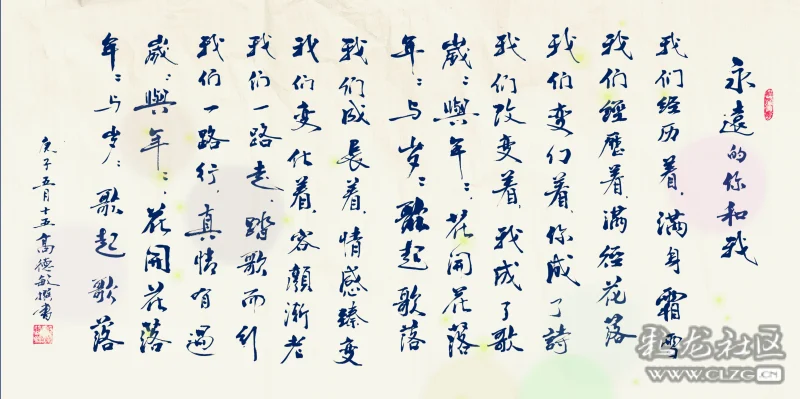 永遠的你和我
我们经历着,满身霜雪
我们經歷着,满径花落
我们变幻着,你成了詩
我们改变着,我成了歌
歲:與年:,花開花落
年:与岁:歌起歌落
我们成長着,情感臻变
我们变化着,容顏漸老
我们一路走,踏歌而行
我们一路行,真情有遇
歲:與年:,花開花落
年:与岁:歌起歌落
庚子五月十五高德敏撰書
彩龙社区
WWW.CLZG.CN